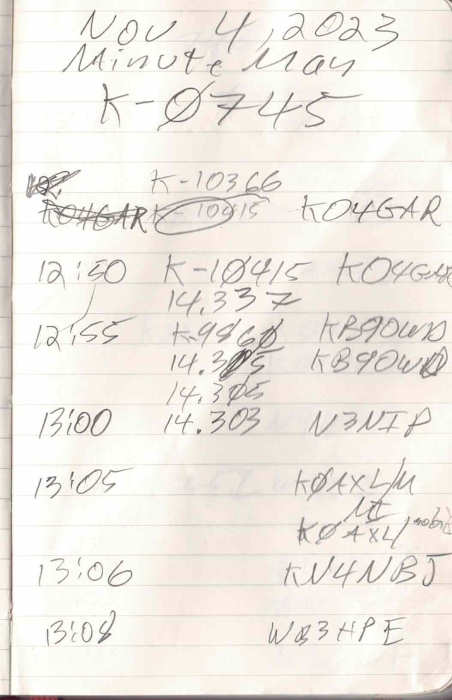 Nov 4, 2023
Minute Man
K-Ø745
K-10366
KO4GAR K-10415 KO4GAR
12:50 K-10415 KO4GAR
14.337
12:55 K-9860 KB9OWD
14.305 KB9OWD
14.305
13:00 14.303 N3NIP
13:05 KØAXL/M
MI
KØAXL/mobile
13:06 KN4NBJ
13:08 WB3HPE